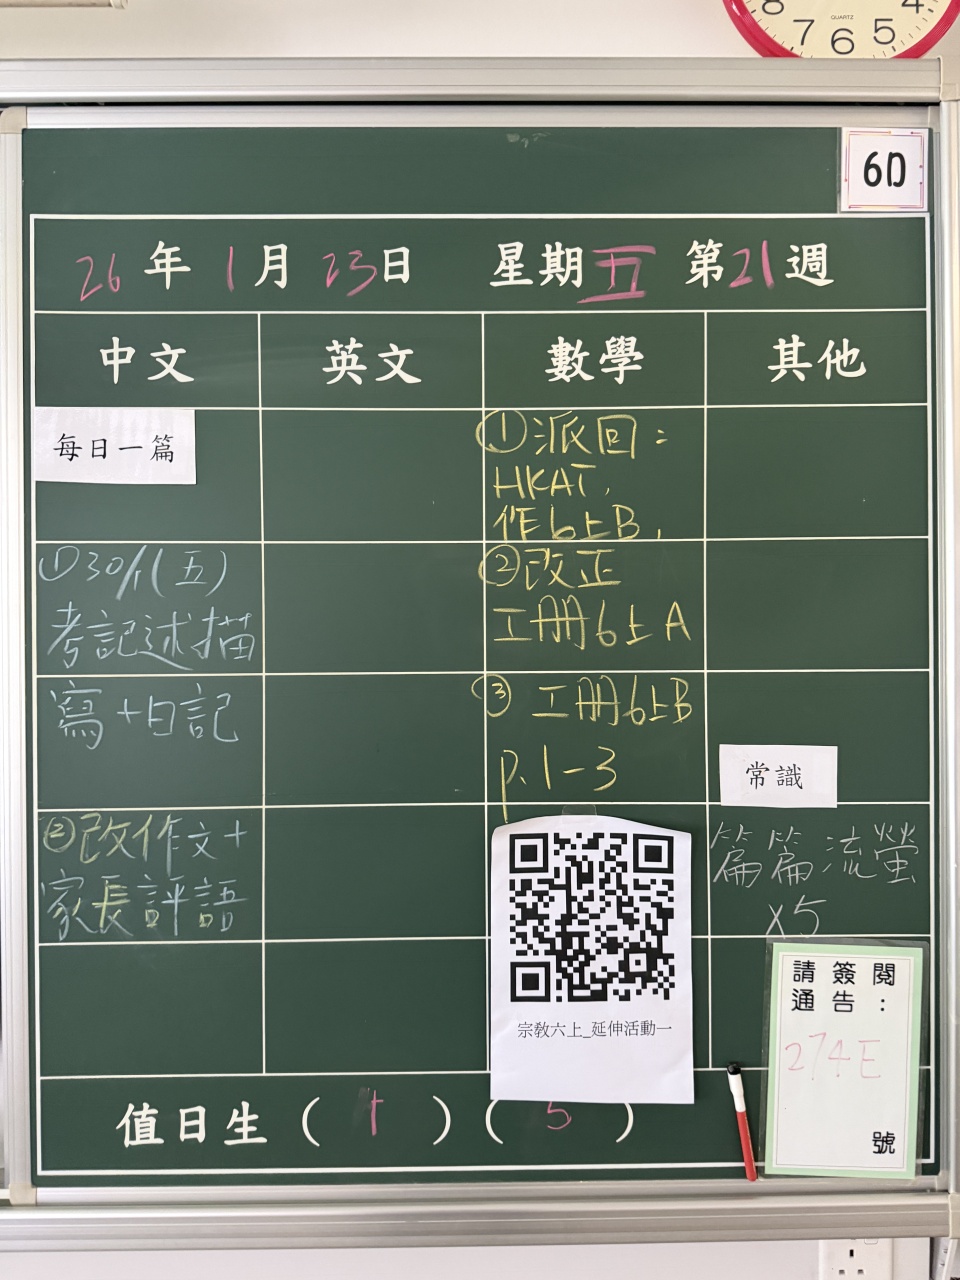 8 4
7 QUARTZ 5
6
6D
26年1月23日 星期五 第21週
中文 英文 數學 其他
每日一篇
①30/1(五)
考記述描
寫+日記
②改作文+
家長評語
①派回：
HKAT,
作6上B,
②改正
工册6上A
③ 工册6上B
p.1-3
宗教六上_延伸活動一
常識
篇篇流螢
x5
請簽閱
通告：
274E
號
值日生( )( 5 )